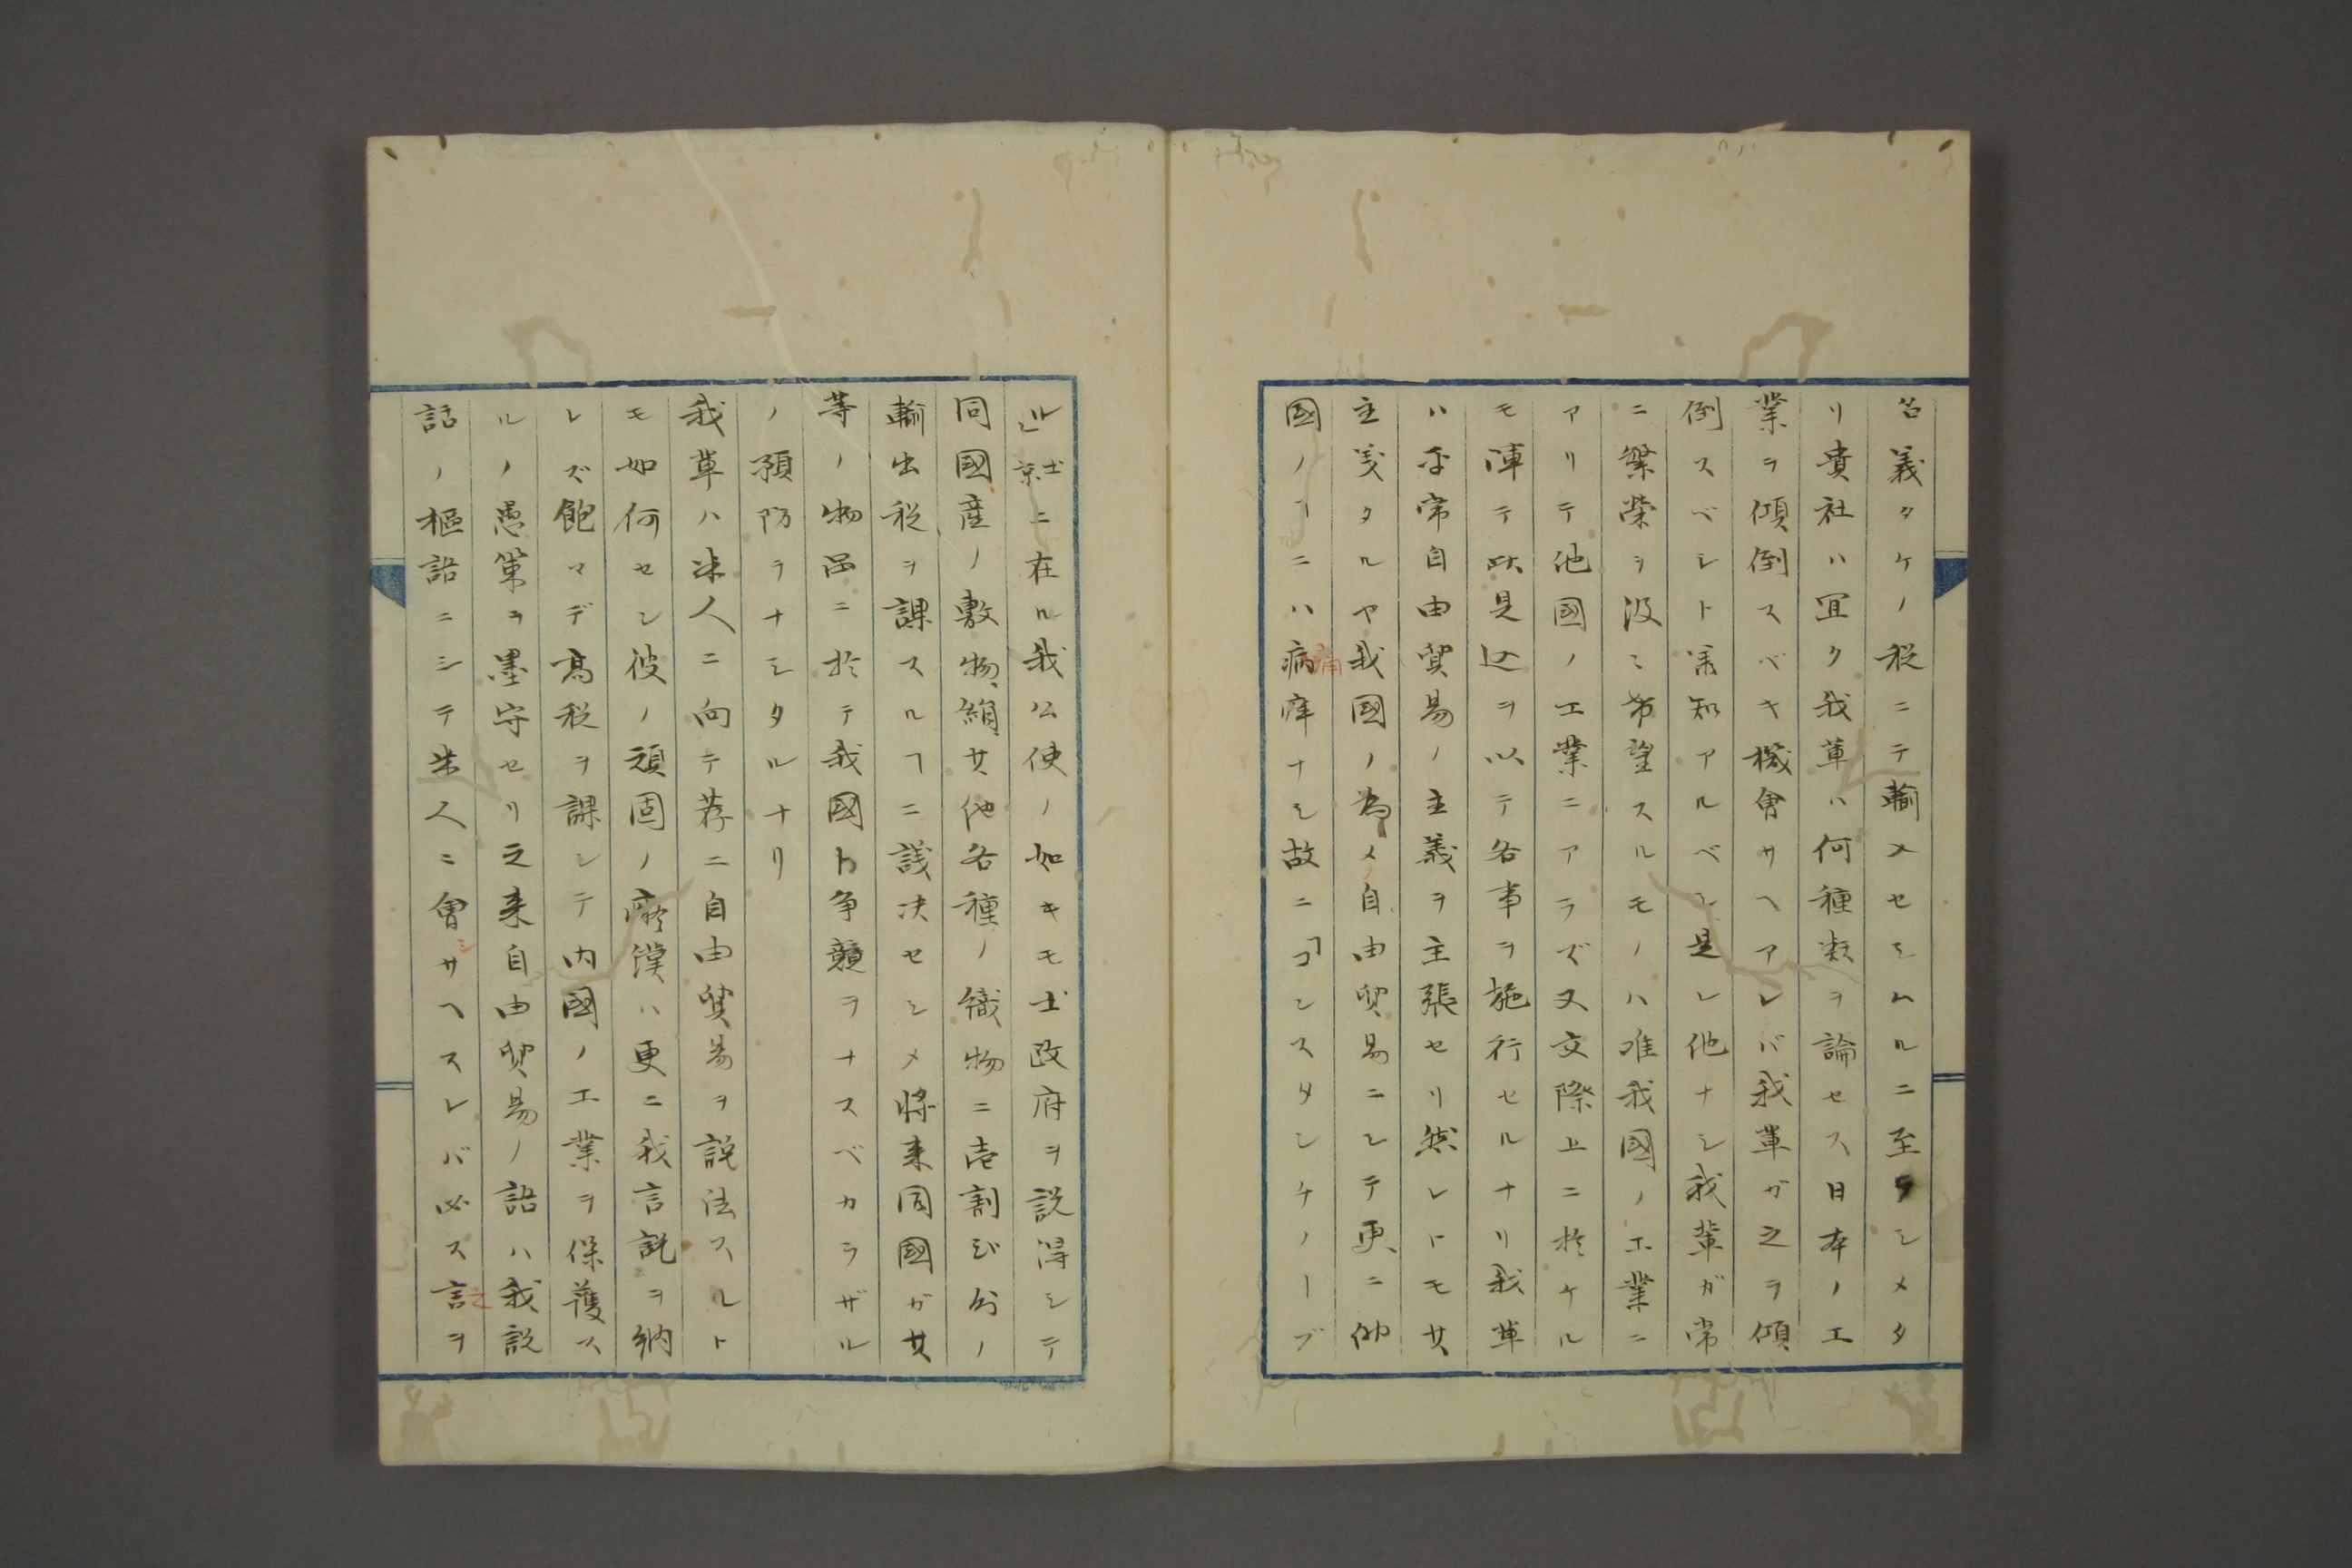 名義タケノ税ニテ輸入セシムルニ至ラシメタ
リ貴社ハ宜ク我輩ハ何種類ヲ論セス日本ノ工
業ヲ傾倒スベキ機會サヘアレバ我輩ガ之ヲ傾
倒スベシト承知アルベシ是レ他ナシ我輩ガ常
ニ繁榮ヲ汲々希望スルモノハ唯我國ノ工業ニ
アリテ他國ノ工業ニアラズ又交際上ニ於ケル
モ陣テ此是迄ヲ以テ各事ヲ施行セルナリ我輩
ハ平常自由貿易ノ主義ヲ主張セリ然レトモ其
主義タルヤ我國ノ為メノ自由貿易ニシテ更ニ他
國ノヿニハ病痛痒ナシ故ニ「コンスタンチノープ
ル」土京ニ在ル我公使ノ如キモ土政府ヲ説得シテ
同國産ノ敷物絹其他各種ノ織物ニ壱割弐分ノ
輸出税ヲ課スルヿニ議决セシメ将来同國ガ其
等ノ物品ニ於テ我國ト争競ヲナスベカラザル
ノ預防ヲナシタルナリ
我輩ハ米人ニ向テ荐ニ自由貿易ヲ説法スルト
モ如何セン彼ノ頑固ノ癡漢ハ更ニ我言説ヲ納
レズ飽マデ高税ヲ課シテ内國ノ工業ヲ保護ス
ルノ愚策ヲ墨守セリ元来自由貿易ノ語ハ我説
話ノ樞語ニシテ米人ニ會シサヘスレバ必ス言之ヲ